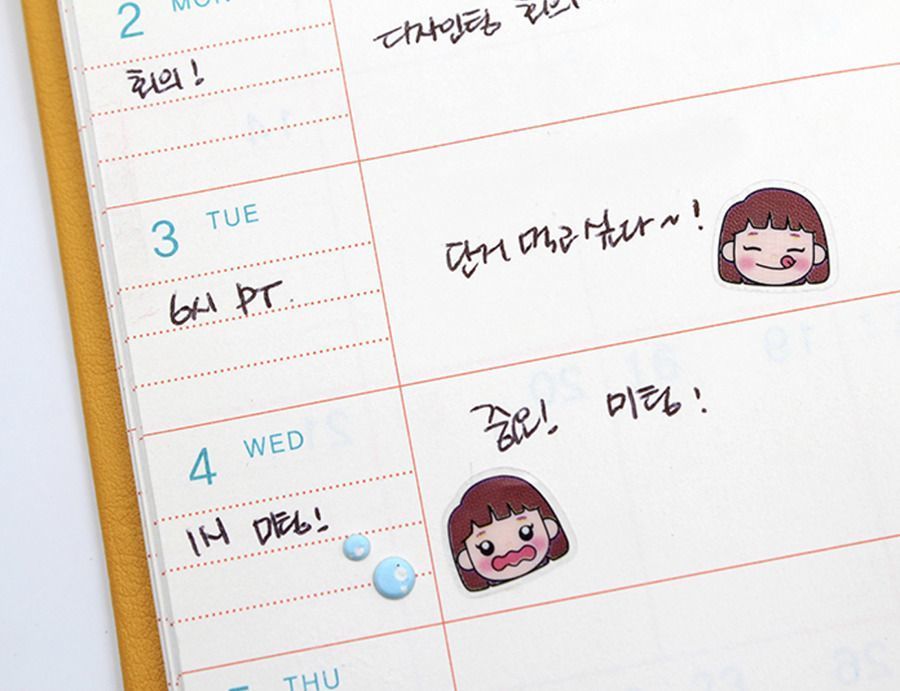 2 MON
디자인팀 회의
회의!
3 TUE
단거 먹고 싶다~!
6시 PT
4 WED
중요! 미팅!
1시 미팅!
THU